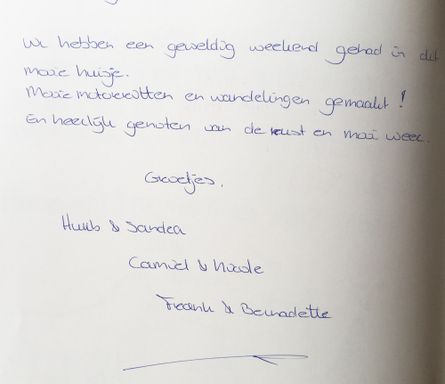 We hebben een geweldig weekend gehad in dit
mooie huisje.
Mooie motorritten en wandelingen gemaakt!
En heerlijk genoten van de rust en mooi weer.
Groetjes,
Huub & Sandra
Camiel & Nicole
Frank & Bernadette